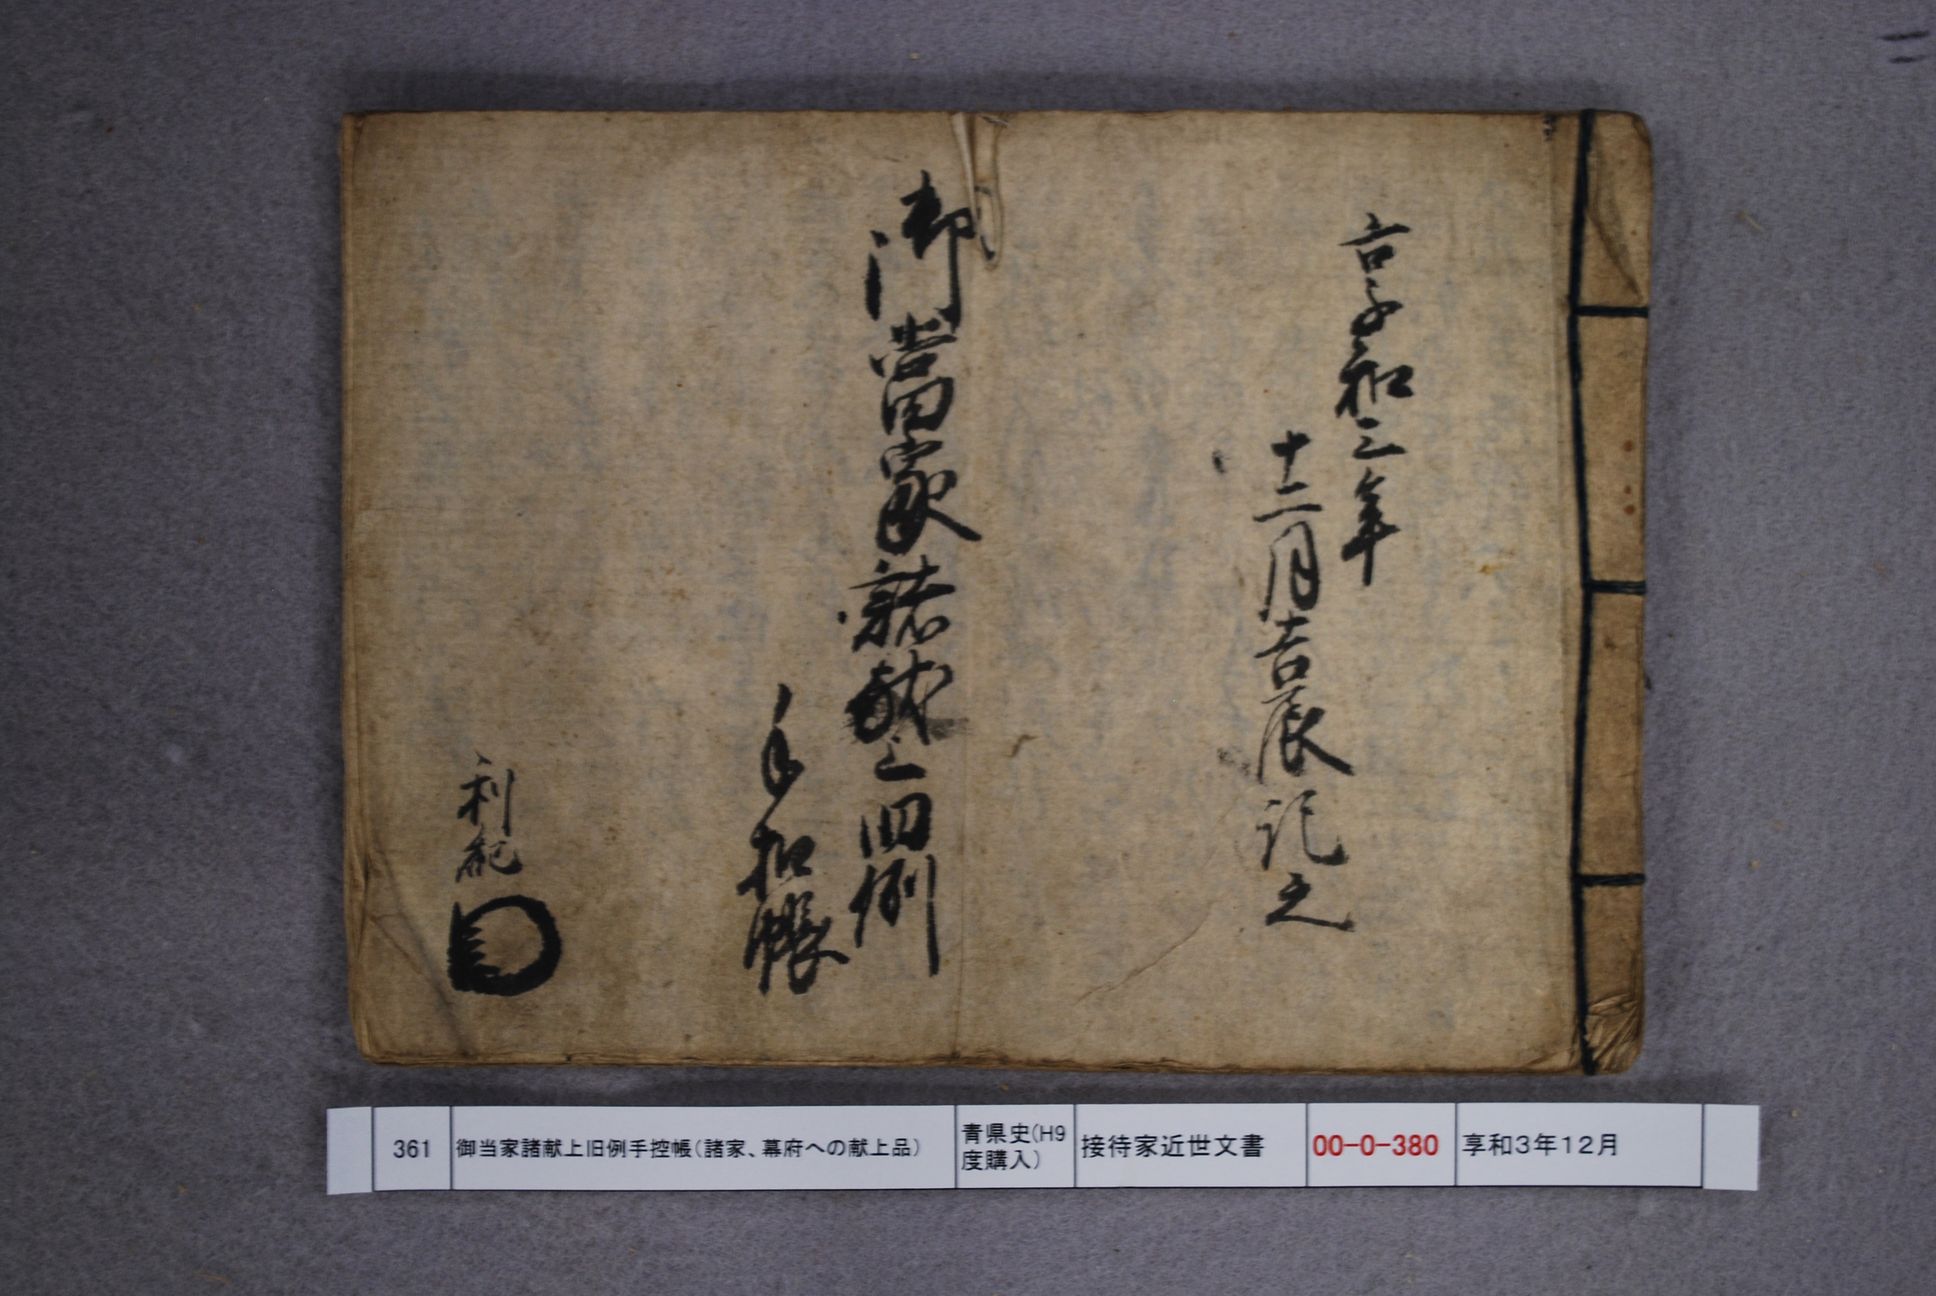 享和三年
十二月吉辰記之
御當家諸献上旧例
手扣帳
利紀
361
御当家諸献上旧例手控帳(諸家、幕府への献上品)
青県史(H9
度購入)
接待家近世文書
00-0-380
享和3年12月